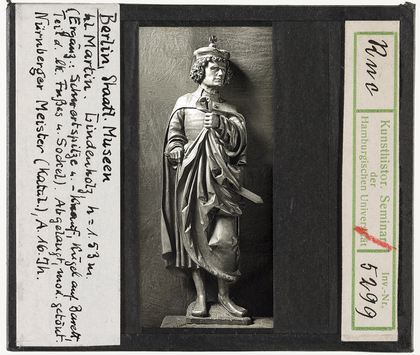 Berlin, Staatl. Museen
hl. Martin. Lindenholz, h = 1.53 m.
(Ergänz.: Schwertspitze u. - Knauf, Kugel auf Barett,
Teil d. lk. Fußes u. Sockel) Abgelaugt, mod. getönt.
Nürnberger Meister (Katal.), A. 16. Jh.
R n c
Kunsthistor. Seminar
der
Hamburgischen Universität
Inv.-Nr.
5299